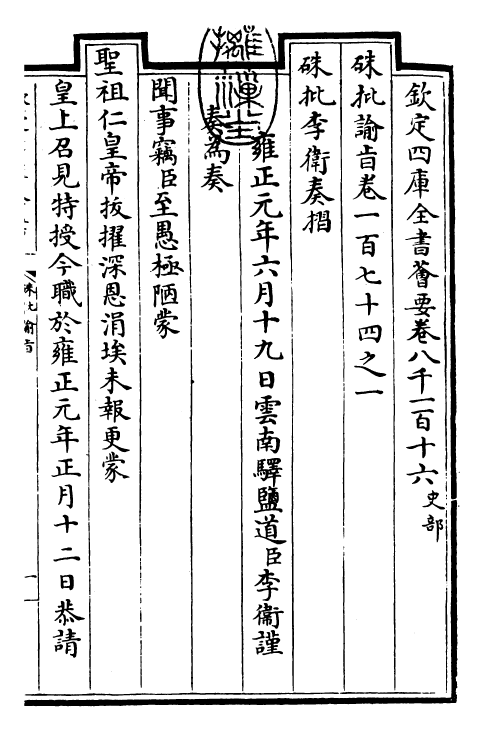 欽定四庫全書薈要卷八千一百十六 史部
硃批諭旨卷一百七十四之一
硃批李衛奏摺
雍正元年六月十九日雲南驛鹽道臣李衛謹
奏為奏
聞事竊臣至愚極陋蒙
聖祖仁皇帝拔擢深恩涓埃未報更蒙
皇上召見特授今職於雍正元年正月十二日恭請
硃批諭旨
一